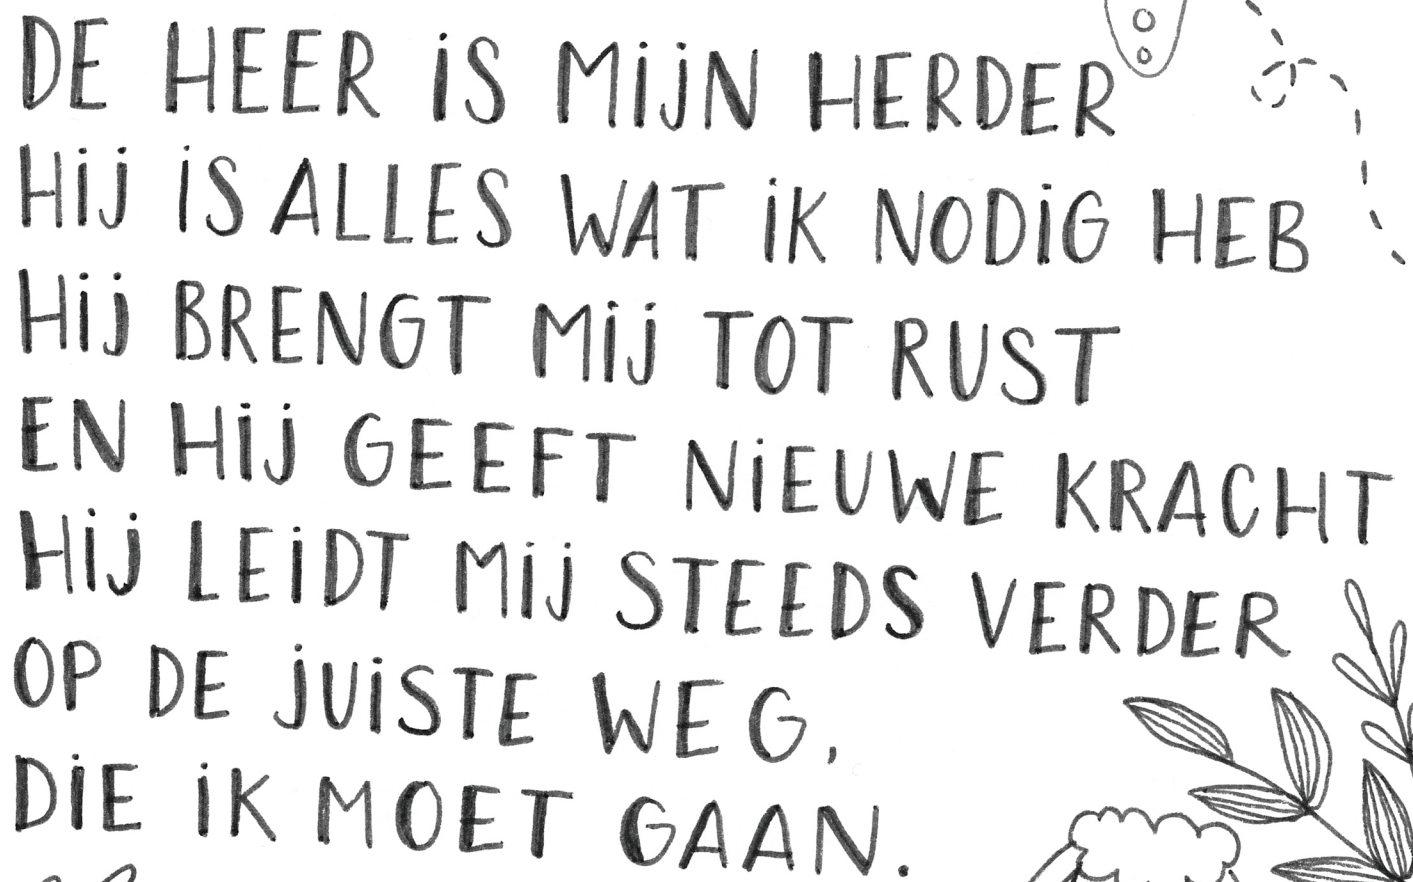 DE HEER iS MijN HERDER
Hij iS ALLES WAT iK NODiG HEB
Hij BRENGT Mij TOT RUST
EN Hij GEEFT NiEUWE KRACHT
Hij LEiDT Mij STEEDS VERDER
OP DE jUiSTE WEG,
DiE iK MOET GAAN.